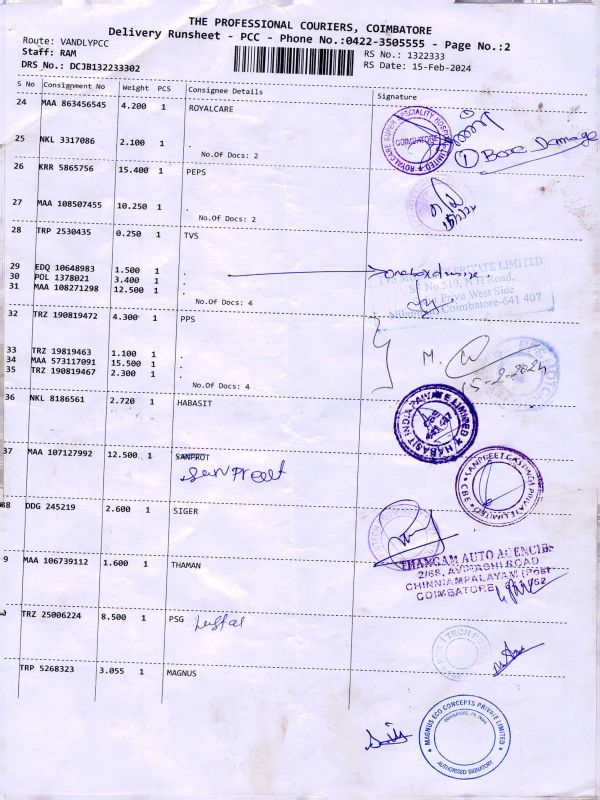 THE PROFESSIONAL COURIERS, COIMBATORE
Delivery Runsheet - PCC - Phone No.:0422-3505555 - Page No.:2
Route: VANDLYPCC
Staff: RAM
DRS No.: DCJB132233302
RS No.: 1322333
RS Date: 15-Feb-2024
S No Consignment No Weight PCS Consignee Details Signature
24 MAA 863456545 4.200 1 ROYALCARE
COIMBATORE
① Box Damage
25 NKL 3317086 2.100 1 .
No.Of Docs: 2
26 KRR 5865756 15.400 1 PEPS
27 MAA 108507455 10.250 1 .
No.Of Docs: 2
28 TRP 2530435 0.250 1 TVS
29 EDQ 10648983 1.500 1 .
30 POL 1378021 3.400 1 .
31 MAA 108271298 12.500 1 .
No.Of Docs: 4
PRIVATE LIMITED
No.519, N H Road,
Privu West Side
Coimbatore-641 407
32 TRZ 190819472 4.300 1 PPS
33 TRZ 19819463 1.100 1 .
34 MAA 573117091 15.500 1 .
35 TRZ 190819467 2.300 1 .
No.Of Docs: 4
M.
15-2-2024
36 NKL 8186561 2.720 1 HABASIT
HABASIT INDIA PRIVATE LIMITED
37 MAA 107127992 12.500 1 SANPROT
San Preet
SANPREET CASTINGS PRIVATE LIMITED
38 DDG 245219 2.600 1 SIGER
9 MAA 106739112 1.600 1 THAMAN
THANGAM AUTO AGENCIES
2/68, AVINASHI ROAD
CHINNIAMPALAYAM (Post)
COIMBATORE
TRZ 25006224 8.500 1 PSG
TRP 5268323 3.055 1 MAGNUS
MAGNUS ECO CONCEPTS PRIVATE LIMITED
COIMBATORE, TN, INDIA
AUTHORISED SIGNATORY